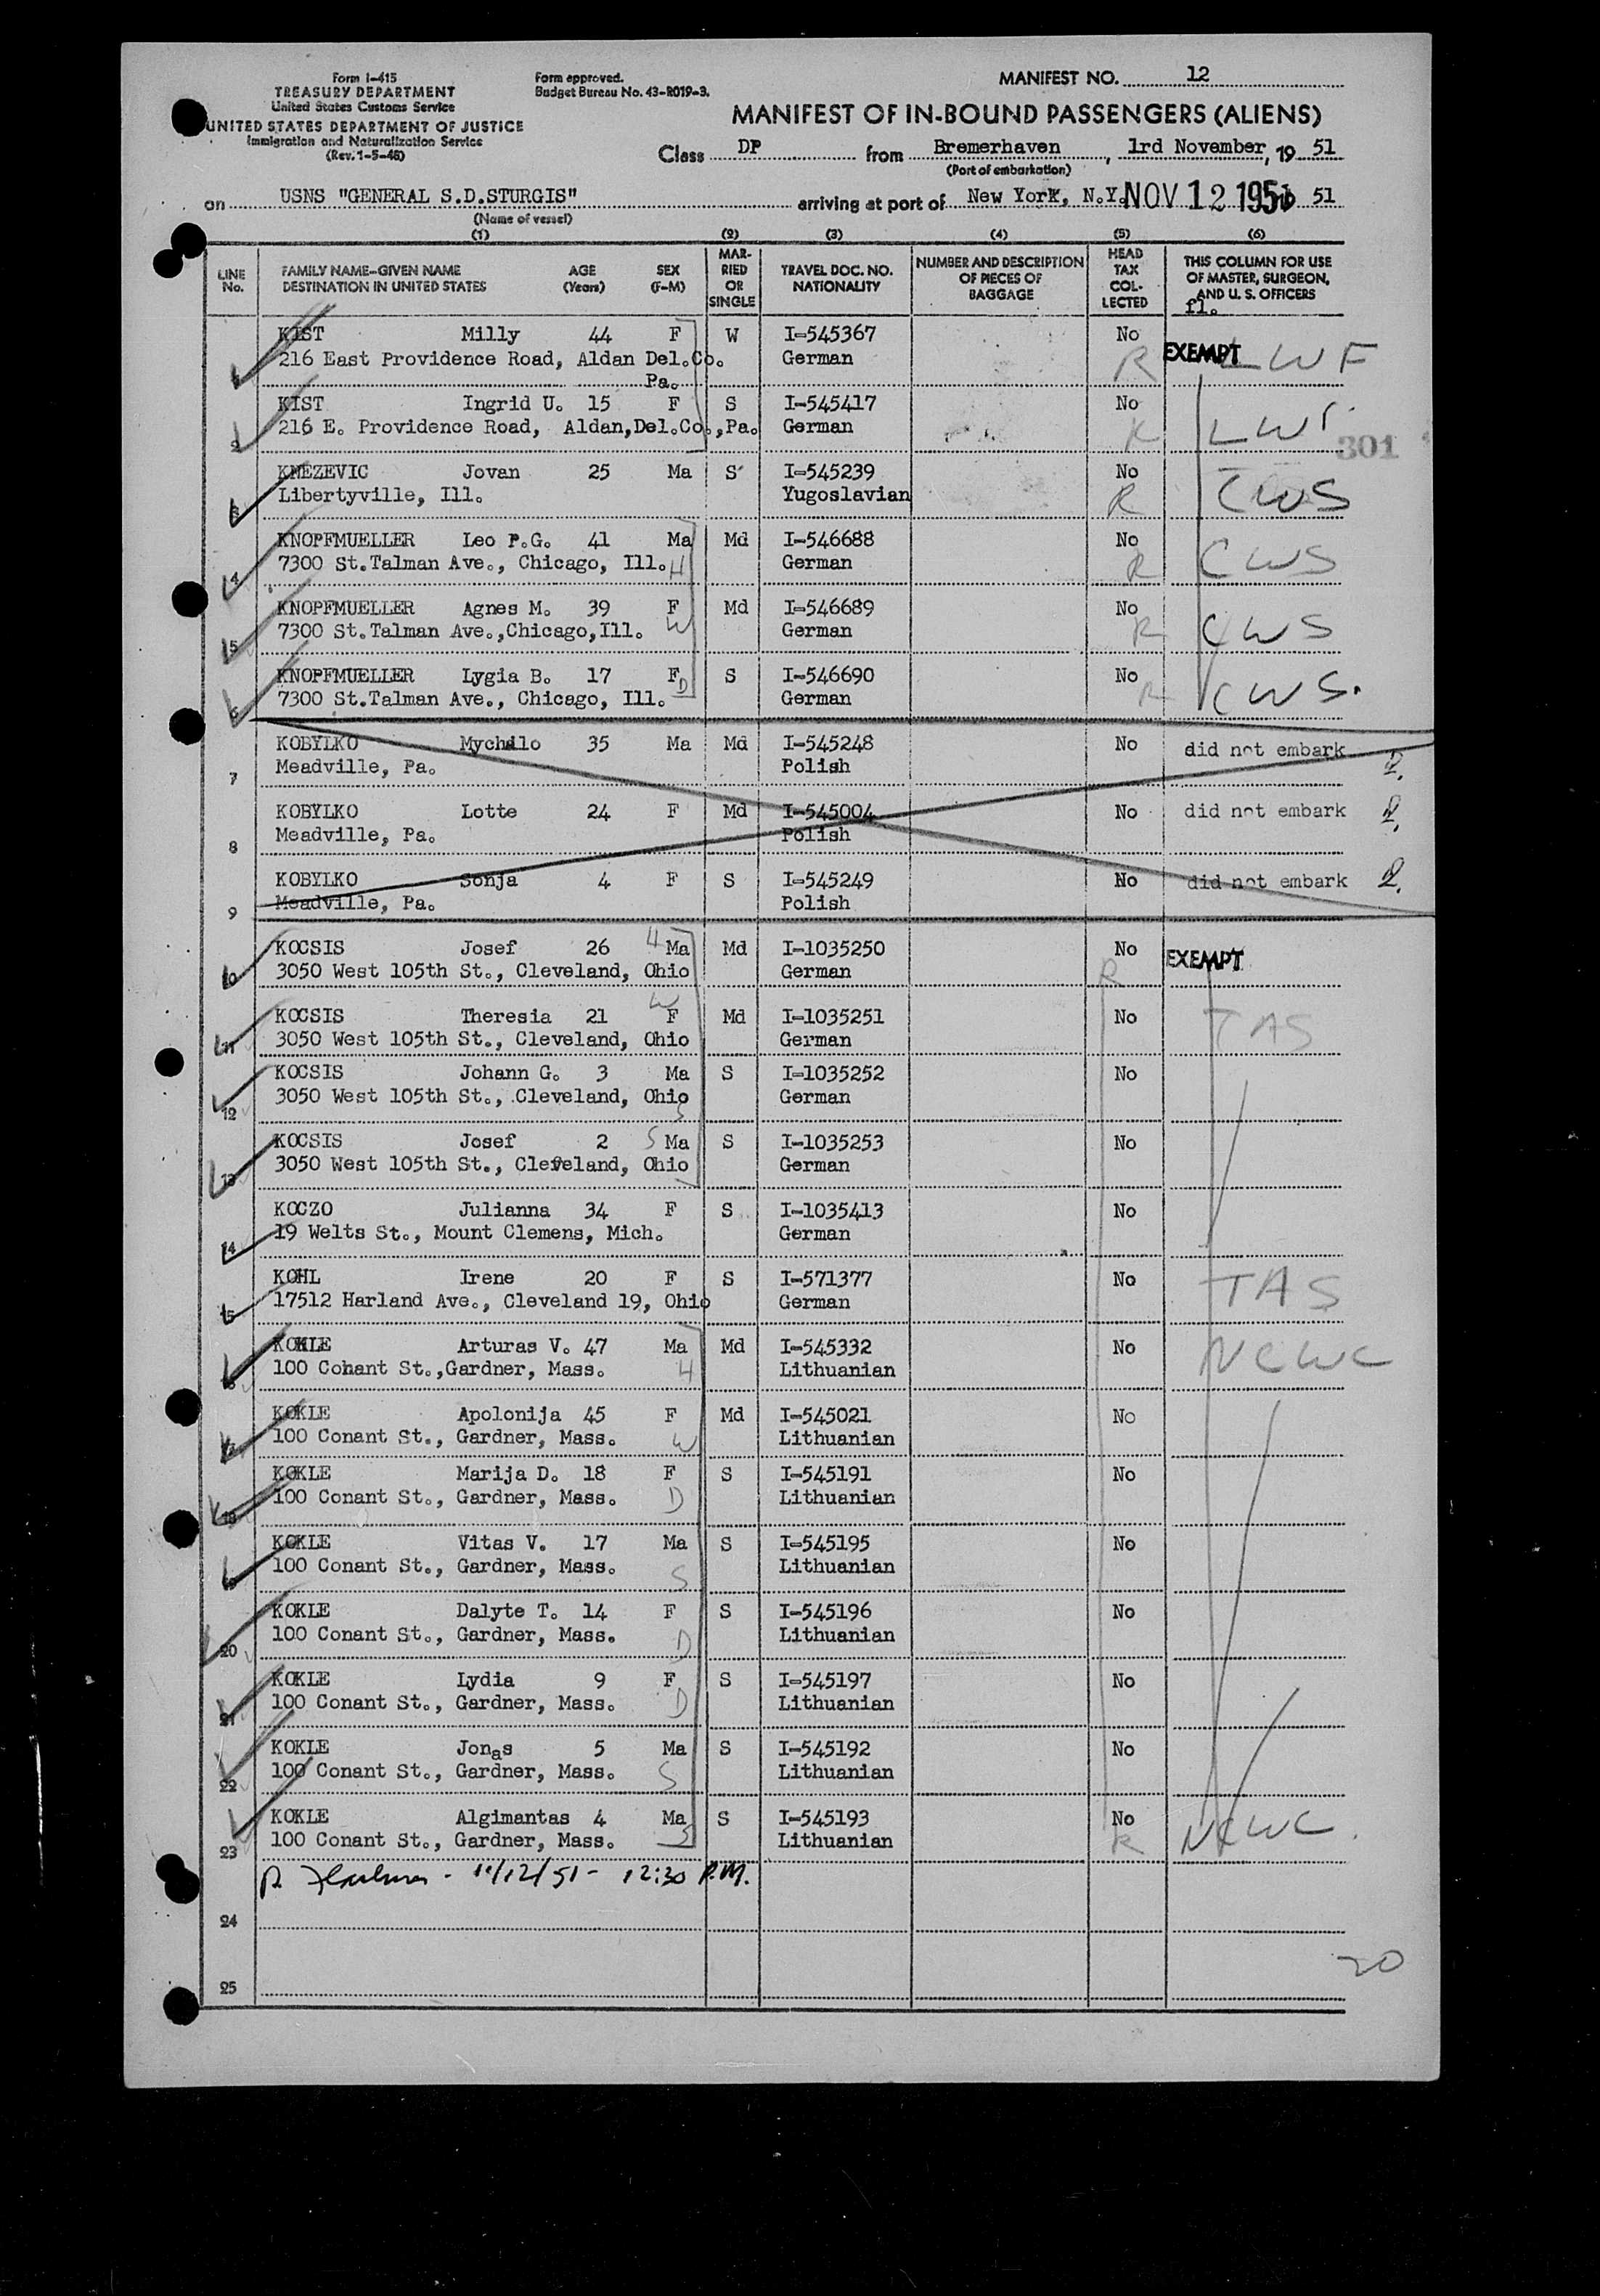 Form I-415
TREASURY DEPARTMENT
United States Customs Service
UNITED STATES DEPARTMENT OF JUSTICE
Immigration and Naturalization Service
(Rev. 1-5-48)
Form approved.
Budget Bureau No. 43-R019-3.
MANIFEST NO. 12
MANIFEST OF IN-BOUND PASSENGERS (ALIENS)
Class DP from Bremerhaven, 1rd November, 19 51
(Port of embarkation)
on USNS "GENERAL S.D.STURGIS" arriving at port of New York, N.Y. NOV 12 1951 51
(Name of vessel)
(1) (2) (3) (4) (5) (6)
LINE No. FAMILY NAME-GIVEN NAME DESTINATION IN UNITED STATES AGE (Years) SEX (F-M) MARRIED OR SINGLE TRAVEL DOC. NO. NATIONALITY NUMBER AND DESCRIPTION OF PIECES OF BAGGAGE HEAD TAX COLLECTED THIS COLUMN FOR USE OF MASTER, SURGEON, AND U. S. OFFICERS
fl.
KIST Milly 44 F W I-545367 No EXEMPT
216 East Providence Road, Aldan Del.Co. German R LWF
Pa.
KIST Ingrid U. 15 F S I-545417 No
216 E. Providence Road, Aldan,Del.Co.,Pa. German R LWF
301
KNEZEVIC Jovan 25 Ma S I-545239 No
3 Libertyville, Ill. Yugoslavian R CWS
KNOPFMUELLER Leo P.G. 41 Ma Md I-546688 No
4 7300 St.Talman Ave., Chicago, Ill. H German R CWS
KNOPFMUELLER Agnes M. 39 F Md I-546689 No
5 7300 St.Talman Ave.,Chicago,Ill. W German R CWS
KNOPFMUELLER Lygia B. 17 F D S I-546690 No
6 7300 St.Talman Ave., Chicago, Ill. German R CWS.
KOBYLKO Mychailo 35 Ma Md I-545248 No did not embark
7 Meadville, Pa. Polish
KOBYLKO Lotte 24 F Md I-545004 No did not embark
8 Meadville, Pa. Polish
KOBYLKO Sonja 4 F S I-545249 No did not embark
9 Meadville, Pa. Polish
KOCSIS Josef 26 H Ma Md I-1035250 No EXEMPT
10 3050 West 105th St., Cleveland, Ohio German R
KOCSIS Theresia 21 W F Md I-1035251 No TAS
11 3050 West 105th St., Cleveland, Ohio German
KOCSIS Johann G. 3 Ma S I-1035252 No
12 3050 West 105th St., Cleveland, Ohio S German
KOCSIS Josef 2 S Ma S I-1035253 No
13 3050 West 105th St., Cleveland, Ohio German
KOCZO Julianna 34 F S I-1035413 No
14 19 Welts St., Mount Clemens, Mich. German
KOHL Irene 20 F S I-571377 No TAS
15 17512 Harland Ave., Cleveland 19, Ohio German
KOKLE Arturas V. 47 Ma Md I-545332 No NCWC
100 Conant St.,Gardner, Mass. H Lithuanian
KOKLE Apolonija 45 F Md I-545021 No
17 100 Conant St., Gardner, Mass. W Lithuanian
KOKLE Marija D. 18 F S I-545191 No
18 100 Conant St., Gardner, Mass. D Lithuanian
KOKLE Vitas V. 17 Ma S I-545195 No
100 Conant St., Gardner, Mass. S Lithuanian
KOKLE Dalyte T. 14 F S I-545196 No
20 100 Conant St., Gardner, Mass. D Lithuanian
KOKLE Lydia 9 F S I-545197 No
21 100 Conant St., Gardner, Mass. D Lithuanian
KOKLE Jonas 5 Ma S I-545192 No
22 100 Conant St., Gardner, Mass. S Lithuanian
KOKLE Algimantas 4 Ma S I-545193 No
23 100 Conant St., Gardner, Mass. S Lithuanian R NCWC
11/12/51 - 12:30 P.M.
24
20
25